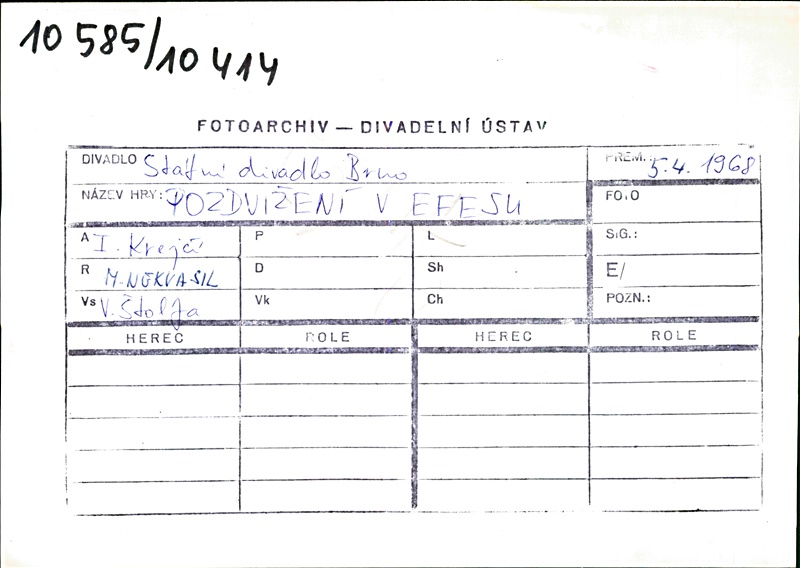 10 585/10 414
FOTOARCHIV — DIVADELNÍ ÚSTAV
DIVADLO Státní divadlo Brno
PREM.: 5.4. 1968
NÁZEV HRY: POZDVIŽENÍ V EFESU
FOTO
A I. Krejčí
P
L
SIG.:
R M. NEKVASIL
D
Sh
E/
Vs V. Štolfa
Vk
Ch
POZN.:
HEREC ROLE HEREC ROLE